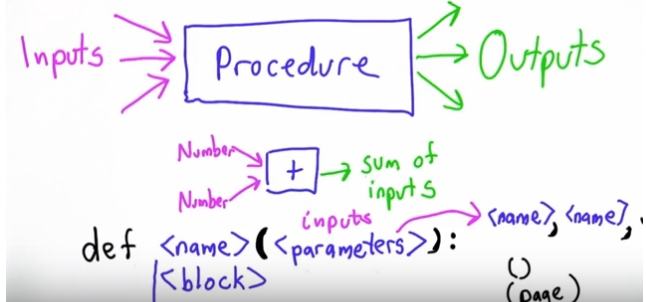 Inputs Procedure Outputs
Number
+ sum of
Number inputs
inputs
def <name>(<parameters>): <name>, <name>,
<block> ()
(page)